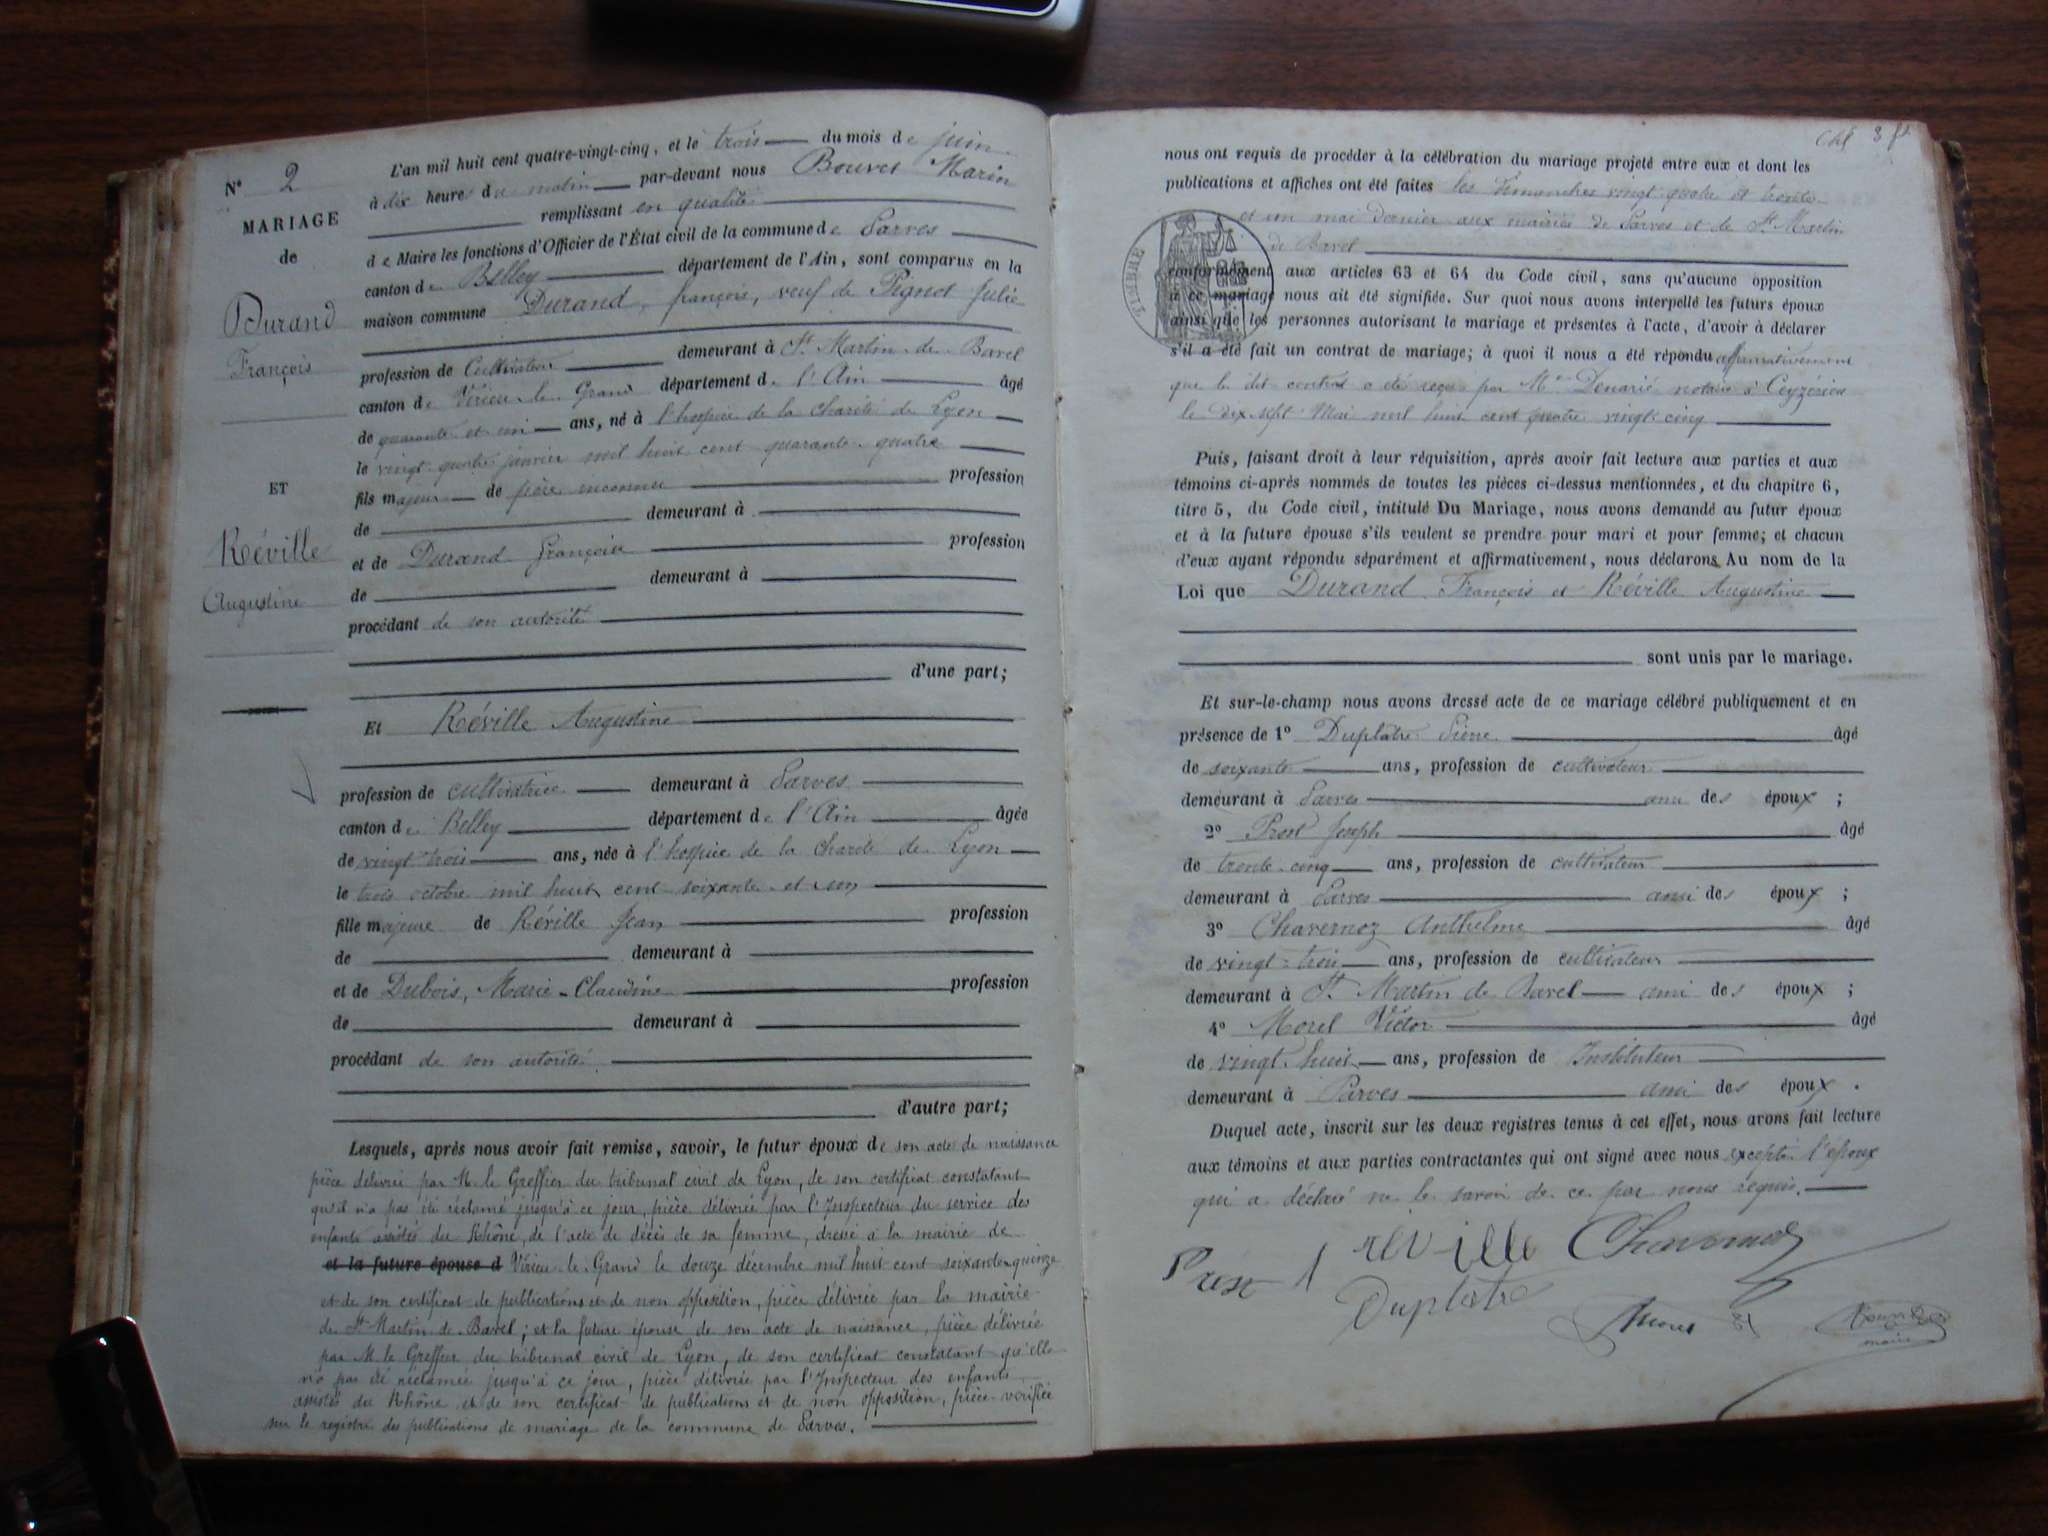 N° 2
MARIAGE
de
Durand
François
ET
Réville
Augustine
L'an mil huit cent quatre-vingt-cinq, et le trois du mois de juin
à dix heure du matin par-devant nous Bouvet Marin
remplissant en qualité
de Maire les fonctions d'Officier de l'État civil de la commune de Parves
canton de Belley département de l'Ain, sont comparus en la
maison commune Durand, françois, veuf de Pignot Julie
profession de Cultivateur demeurant à St Martin-de-Bavel
canton de Virieu-le-Grand département de l'Ain âgé
de quarante et un ans, né à l'hospice de la Charité de Lyon
le vingt-quatre janvier mil huit cent quarante-quatre
fils majeur de père inconnu profession
de demeurant à
et de Durand Françoise profession
de demeurant à
procédant de son autorité
d'une part;
Et Réville Augustine
profession de cultivatrice demeurant à Parves
canton de Belley département de l'Ain âgée
de vingt-trois ans, née à l'hospice de la Charité de Lyon
le trois octobre mil huit cent soixante-et-un
fille majeure de Réville Jean profession
de demeurant à
et de Dubois, Marie-Claudine profession
de demeurant à
procédant de son autorité
d'autre part;
Lesquels, après nous avoir fait remise, savoir, le futur époux de son acte de naissance
pièce délivrée par M. le Greffier du tribunal civil de Lyon, de son certificat constatant
qu'il n'a pas été réclamé jusqu'à ce jour, pièce délivrée par l'Inspecteur du service des
enfants assistés du Rhône, de l'acte de décès de sa femme, dressé à la mairie de
et la future épouse d Virieu-le-Grand le douze décembre mil huit cent soixante-quinze
et de son certificat de publications et de non opposition, pièce délivrée par la mairie
de St Martin-de-Bavel; et la future épouse de son acte de naissance, pièce délivrée
par M. le Greffier du tribunal civil de Lyon, de son certificat constatant qu'elle
n'a pas été réclamée jusqu'à ce jour, pièce délivrée par l'Inspecteur des enfants
assistés du Rhône et de son certificat de publications et de non opposition, pièce vérifiée
sur le registre des publications de mariage de la commune de Parves.
nous ont requis de procéder à la célébration du mariage projeté entre eux et dont les
publications et affiches ont été faites les dimanches vingt-quatre et trente
et un mai dernier aux mairies de Parves et de St Martin
de Bavel
TIMBRE
conformément aux articles 63 et 64 du Code civil, sans qu'aucune opposition
à ce mariage nous ait été signifiée. Sur quoi nous avons interpellé les futurs époux
ainsi que les personnes autorisant le mariage et présentes à l'acte, d'avoir à déclarer
s'il a été fait un contrat de mariage; à quoi il nous a été répondu affirmativement
que le dit contrat a été reçu par Me Denarié notaire à Ceyzérieu
le dix-sept Mai mil huit cent quatre vingt cinq
Puis, faisant droit à leur réquisition, après avoir fait lecture aux parties et aux
témoins ci-après nommés de toutes les pièces ci-dessus mentionnées, et du chapitre 6,
titre 5, du Code civil, intitulé Du Mariage, nous avons demandé au futur époux
et à la future épouse s'ils veulent se prendre pour mari et pour femme; et chacun
d'eux ayant répondu séparément et affirmativement, nous déclarons Au nom de la
Loi que Durand François et Réville Augustine
sont unis par le mariage.
Et sur-le-champ nous avons dressé acte de ce mariage célébré publiquement et en
présence de 1° Duplatre Pierre âgé
de soixante ans, profession de cultivateur
demeurant à Parves ami des époux ;
2° Prost Joseph âgé
de trente-cinq ans, profession de cultivateur
demeurant à Parves ami des époux ;
3° Chavernoz Anthelme âgé
de vingt-trois ans, profession de cultivateur
demeurant à St Martin de Bavel ami des époux ;
4° Morel Victor âgé
de vingt-huit ans, profession de Instituteur
demeurant à Parves ami des époux .
Duquel acte, inscrit sur les deux registres tenus à cet effet, nous avons fait lecture
aux témoins et aux parties contractantes qui ont signé avec nous excepté l'époux
qui a déclaré ne le savoir de ce par nous requis.
Prost J reville Chavernoz
Duplatre Morel
maire